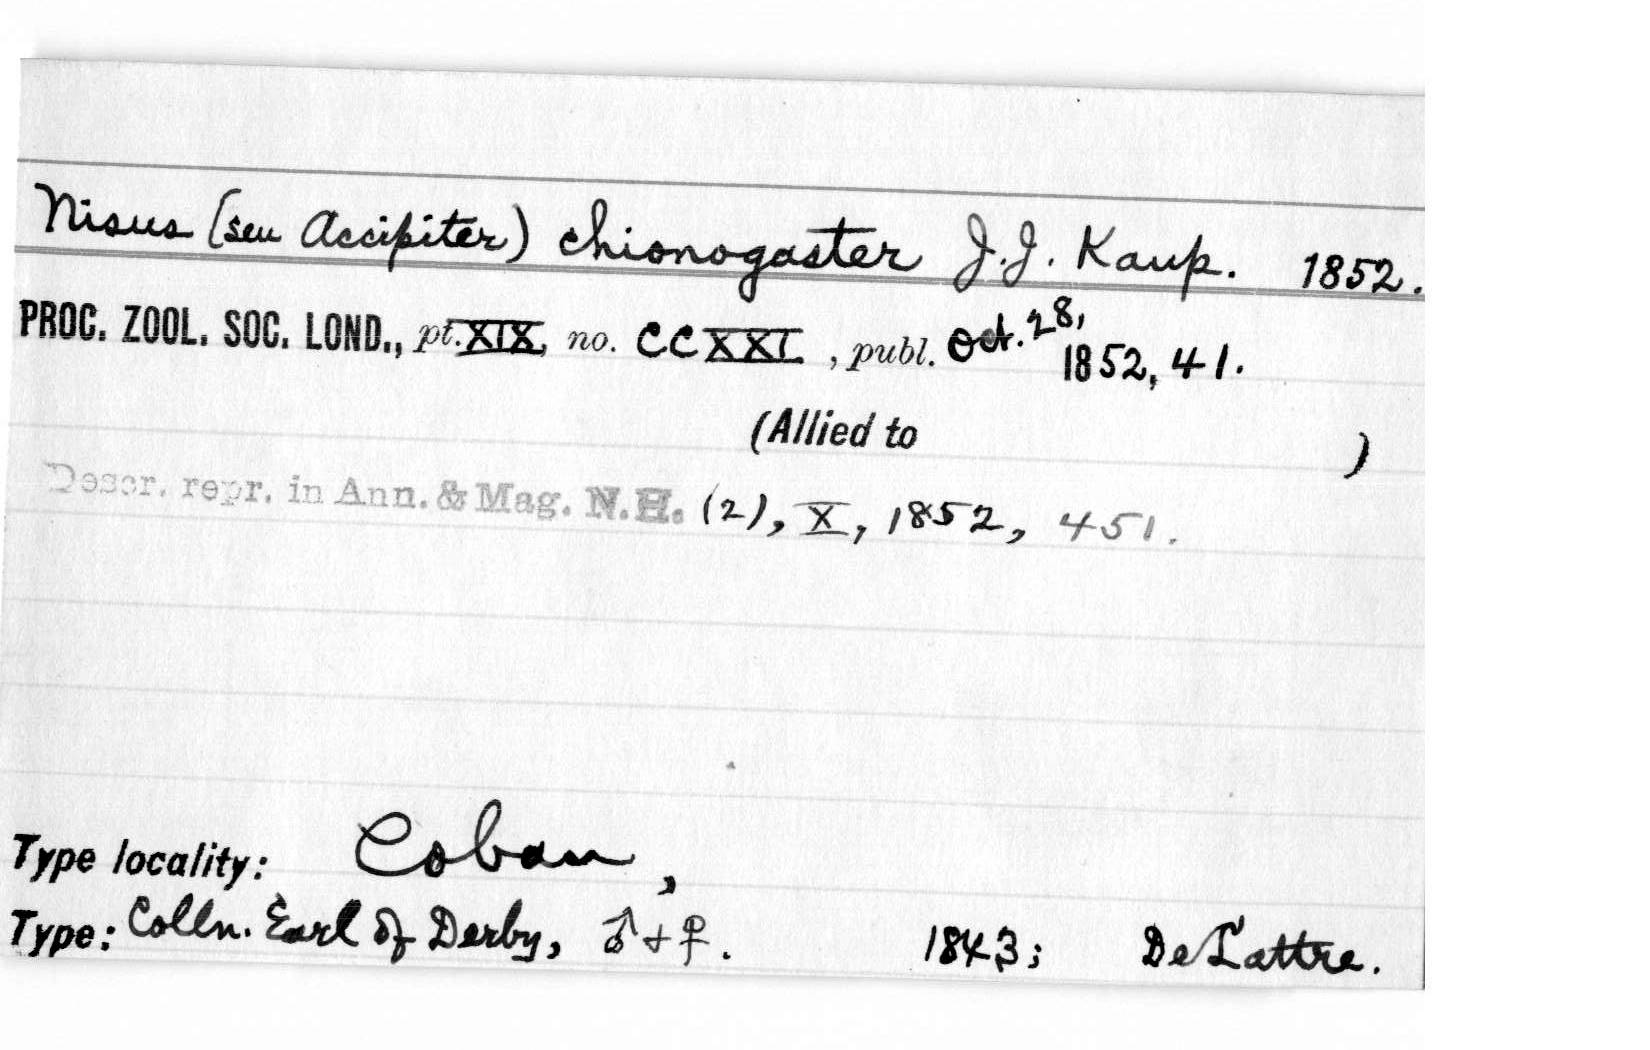 Nisus (seu Accipiter) chionogaster J.J. Kaup. 1852.
PROC. ZOOL. SOC. LOND., pt. XIX, no. CCXXI, publ. Oct. 28,
1852, 41.
(Allied to )
Descr. repr. in Ann. & Mag. N.H. (2), X, 1852, 451.
Type locality: Coban,
Type: Colln. Earl of Derby, ♂ + ♀. 1843; DeLattre.